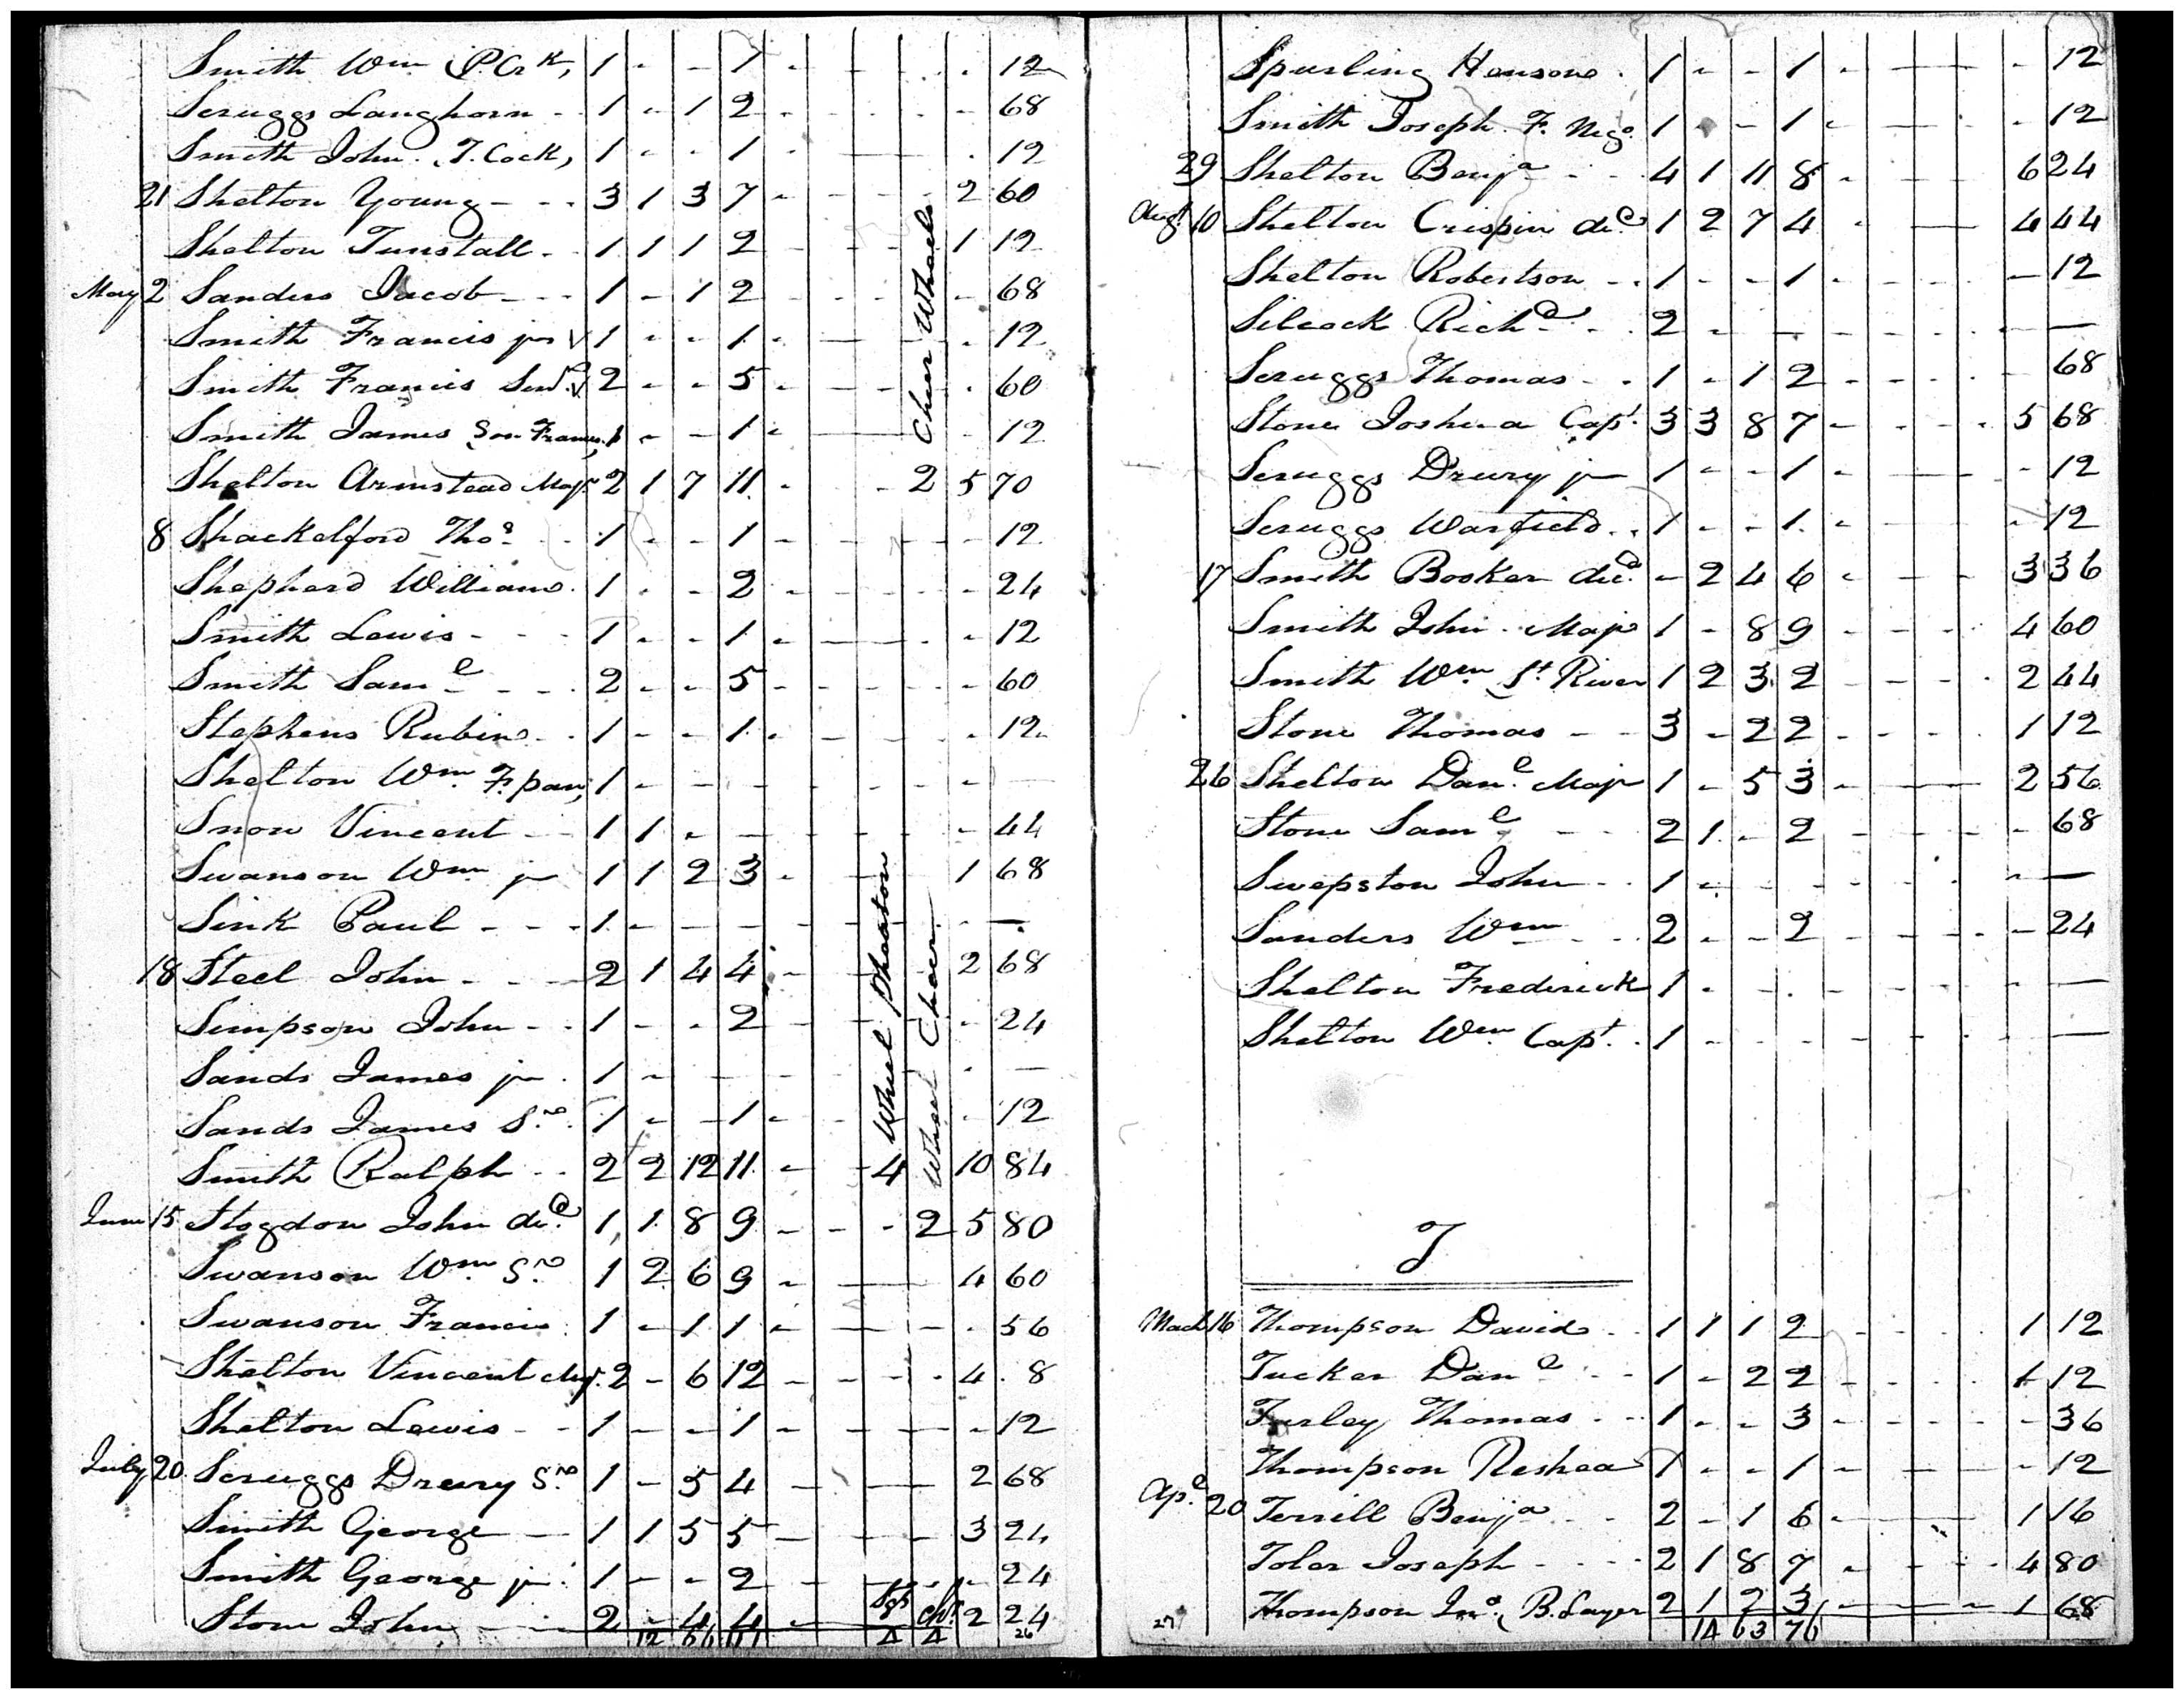 Smith Wm P. Crk, 1 - - 1 - - - . . 12
Scruggs Langhorn - 1 - 1 2 - - - - - 68
Smith John. T. Cock, 1 - - 1 - - - . 12
21 Shelton Young - - - 3 1 3 7 - - - - 2 60
Shelton Tunstall - 1 1 1 2 - - - 1 12
May 2 Sanders Jacob - - - 1 - 1 2 - - - - - 68
Smith Francis jr √ 1 - - 1 - - - . 12
Smith Francis Senr √ 2 - - 5 - - - - . 60
Smith James Son Frances, 1 - - 1 - - - - 12
Shelton Armstead Majr 2 1 7 11 - - 2 5 70
Chear Wheels
8 Shackelford Thos - - 1 - - 1 - - - - - 12
Shepherd William 1 - - 2 - - - - - 24
Smith Lewis - - - 1 - - 1 - - - - 12
Smith Saml - - - 2 - - 5 - - - - - 60
Stephens Rubin - - 1 - - 1 - - - - - 12
Shelton Wm F. pan, 1 - - - - - - - - —
Snow Vincent - - 1 1 - - - - - - 44
Swanson Wm jr 1 1 2 3 - - - 1 68
Sink Paul - - - 1 - - - - - - - - —
18 Steel John - - - 2 1 4 4 - - - 2 68
Simpson John - - 1 - - 2 - - - - 24
Sands James jr - 1 - - - - - - - —
Sands James Sr 1 - - 1 - - - - 12
Smith Ralph - - 2 2 12 11 - - 4 10 84
4 Wheel Pheaton
Wheel Chear
June 15 Stogdon John decd 1 1 8 9 - - - 2 5 80
Swanson Wm Sr 1 2 6 9 - - - 4 60
Swanson Francis 1 - 1 1 - - - - . 56
Shelton Vincent Majr 2 - 6 12 - - - - 4 . 8
Shelton Lewis - - 1 - - 1 - - - - - 12
July 20 Scruggs Drury Sr 1 - 5 4 - - - 2 68
Smith George - 1 1 5 5 - - - - 3 24
Smith George jr 1 - - 2 - - - - 24
Stone John - - 2 - 4 4 - - 2 24
12 66 111 4 4 26
Spurling Hanson . 1 - - 1 - - - - 12
Smith Joseph. F. Nego. 1 - - 1 - - - - 12
29 Shelton Benja - - 4 1 11 8 - - - 6 24
Augt 10 Shelton Crispin decd 1 2 7 4 - - - 4 44
Shelton Robertson - - 1 - - 1 - - - - 12
Silcock Richd - - 2 - - - - - - - —
Scruggs Thomas - - 1 - 1 2 - - - - 68
Stone Joshua Capt 3 3 8 7 - - - - 5 68
Scruggs Drury jr 1 - - 1 - - - - 12
Scruggs Warfield . . 1 - - 1 - - - - 12
17 Smith Booker decd - 2 4 6 - - - 3 36
Smith John. Majr 1 - 8 9 - - - 4 60
Smith Wm St River 1 2 3 2 - - - - 2 44
Stone Thomas - - 3 - 2 2 - - - - 1 12
26 Shelton Danl Majr 1 - 5 3 - - - 2 56
Stone Saml - - 2 1 - 2 - - - - - 68
Swepston John - - 1 - - - - - - - —
Sanders Wm - - - 2 - - 2 - - - - - 24
Shelton Frederick 1 - - - - - - - —
Shelton Wm Capt. . 1 - - - - - - - —
T
March 16 Thompson David - - 1 1 1 2 - - - - 1 12
Tucker Danl - - 1 - 2 2 - - - - 1 12
Turley Thomas - - 1 - - 3 - - - - - 36
Thompson Reshea 1 - - 1 - - - - 12
Apl 20 Terrill Benja - - 2 - 1 6 - - - 1 16
Toler Joseph - - - 2 1 8 7 - - - - 4 80
27 Thompson Jno. B. Layer 2 1 2 3 - - - - 1 68
14 63 76